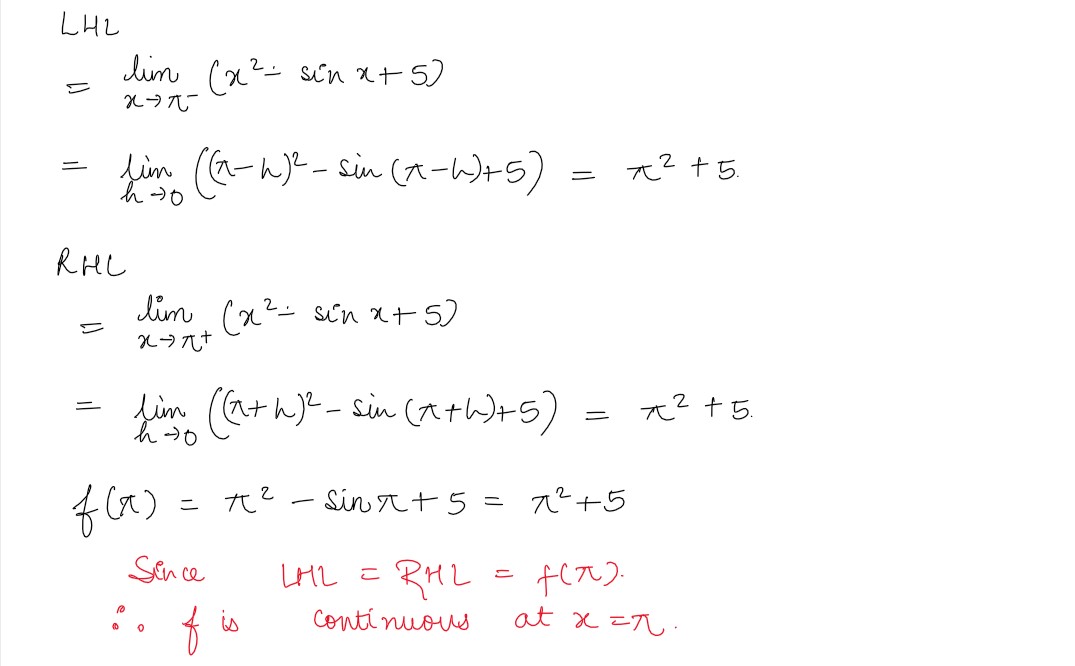 LHL
= lim x→π⁻ (x² - sin x + 5)
= lim h→0 ((π-h)² - sin (π-h)+5) = π² + 5.
RHL
= lim x→π⁺ (x² - sin x + 5)
= lim h→0 ((π+h)² - sin (π+h)+5) = π² + 5.
f(π) = π² - sin π + 5 = π²+5
Since LHL = RHL = f(π).
∴ f is continuous at x = π.